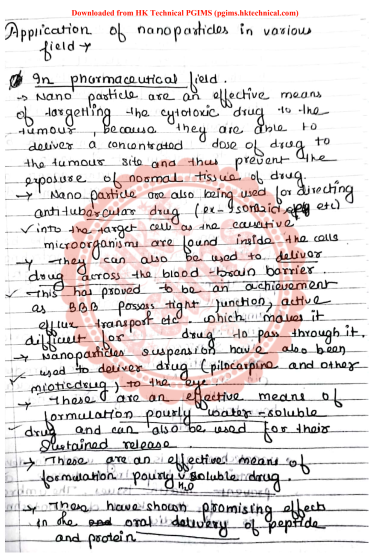 Downloaded from HK Technical PGIMS (pgims.hktechnical.com)
Application of nanoparticles in various
field →
In pharmaceutical field.
→ Nano particle are an effective means
of targetting the cytotoxic drug to the
tumour, because they are able to
deliver a concentrated dose of drug to
the tumour site and thus prevent the
exposure of normal tissue of drug.
→ Nano particle are also being used for directing
anti-tubercular drug (ex- etc)
into the target cell as the causative
microorganism are found inside the cells
→ They can also be used to deliver
drug across the blood-brain barrier.
This has proved to be an achievement
as BBB possess tight junction, active
efflux transport etc which makes it
difficult for drug to pass through it.
→ Nanoparticles suspension have also been
used to deliver drug (pilocarpine and other
mioticdrug) to the eye
→ These are an effective means of
formulation pourly water-soluble
drug and can also be used for their
sustained release.
→ These are an effective means of
formulation pourly H₂O soluble drug.
→ Then have shown promising effects
in the oral delivery of peptide
and protein